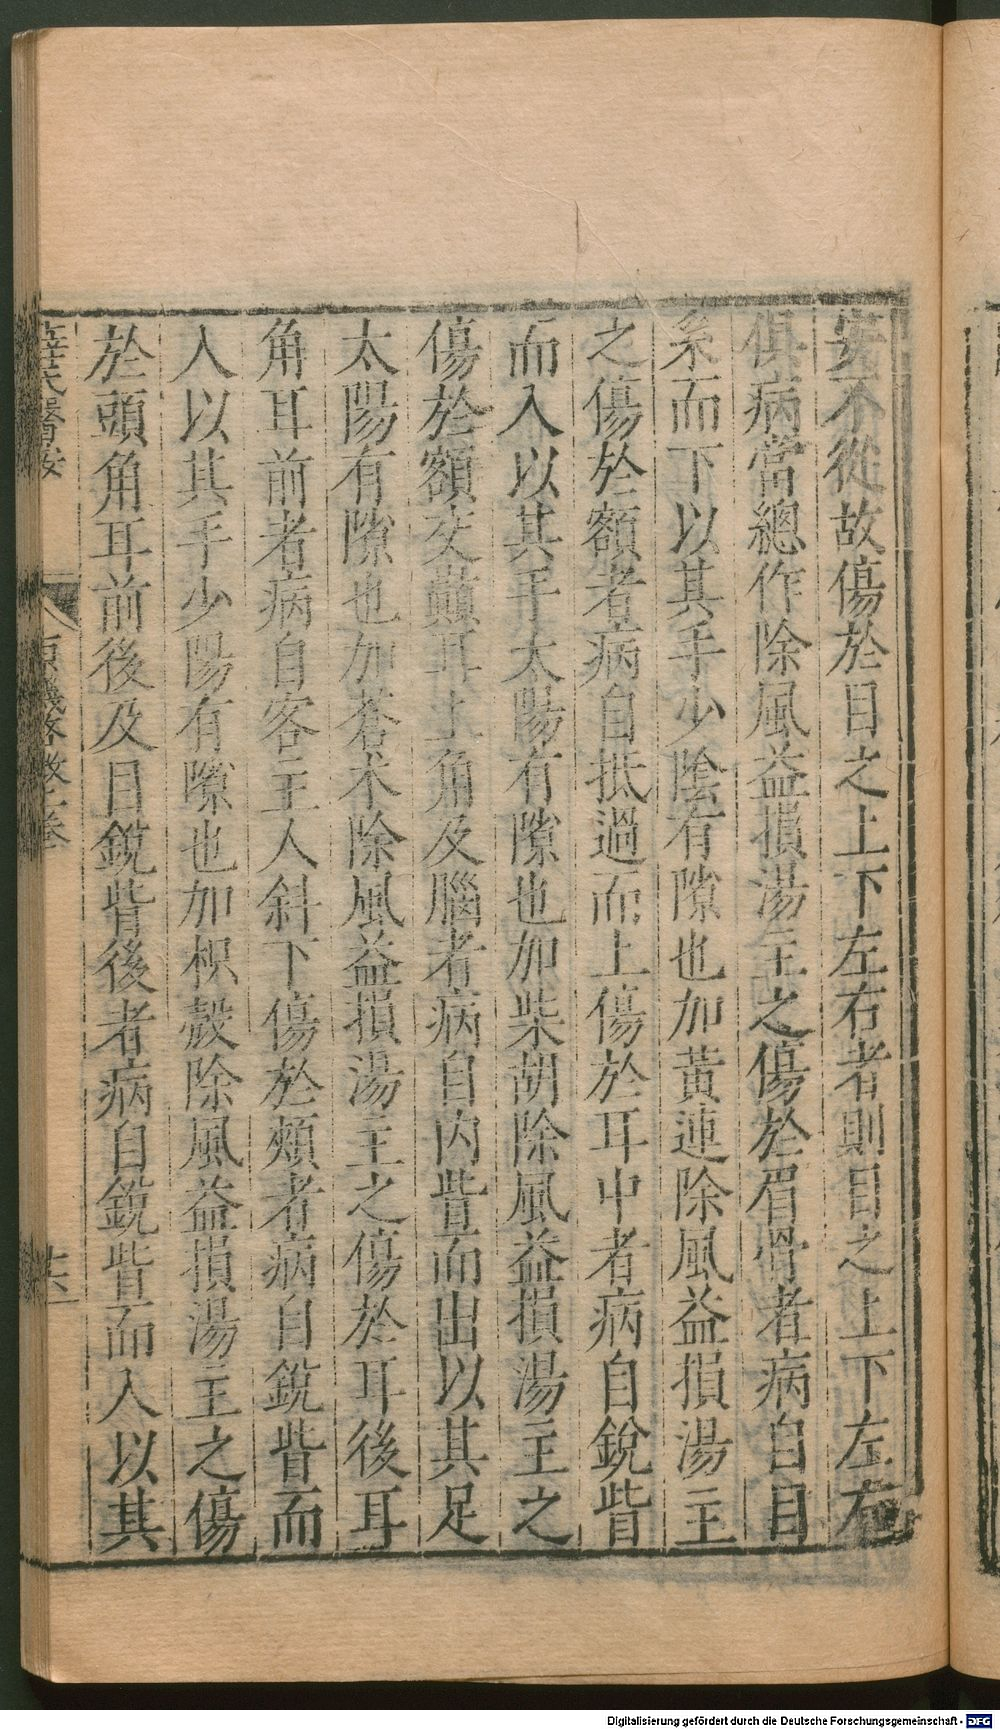 害不從故傷於目之上下左右者則目之上下左右
俱病當總作除風益損湯主之傷於眉骨者病自目
系而下以其手少陰有隙也加黃連除風益損湯主
之傷於額者病自抵過而上傷於耳中者病自銳眥
而入以其手太陽有隙也加柴胡除風益損湯主之
傷於額交巔耳上角及腦者病自內眥而出以其足
太陽有隙也加蒼朮除風益損湯主之傷於耳後耳
角耳前者病自客主人斜下傷於頰者病自銳眥而
入以其手少陽有隙也加枳殼除風益損湯主之傷
於頭角耳前後及目銳眥後者病自銳眥而入以其
薛氏醫按
原機啓微上卷
Digitalisierung gefördert durch die Deutsche Forschungsgemeinschaft - DFG